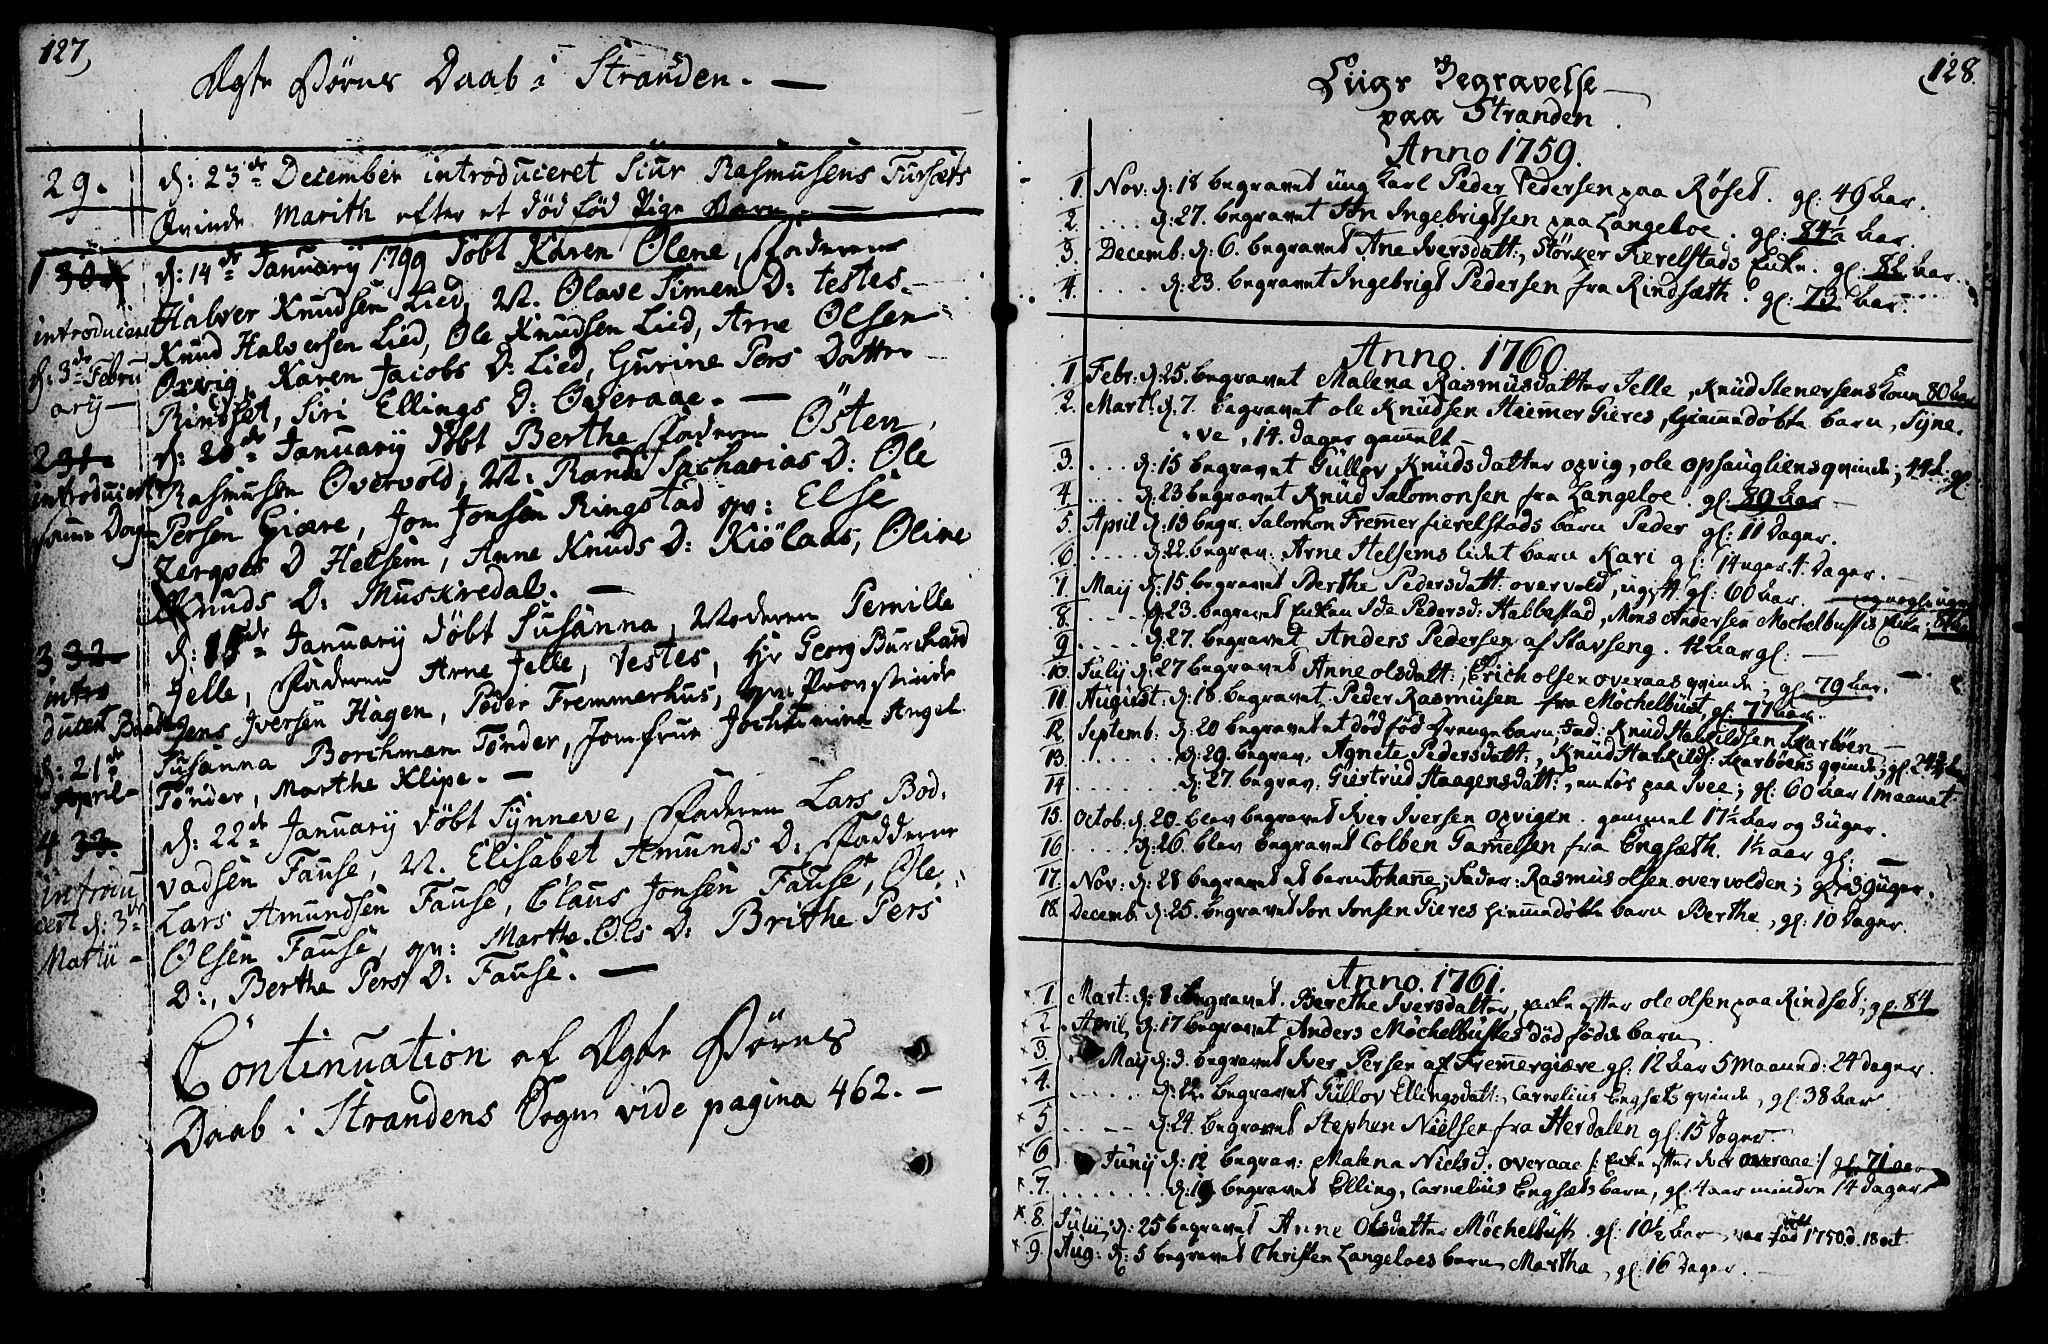 127,
Ægte Børns Daab i Stranden. —
29. d: 23de December introduceret Siur Rasmusens Fursæts
Qvinde Marith efter et død fød Pige Barn. —
1 d: 14de January 1799 døbt Karen Olene, Faderen
introducert Halver Knudsen Lied, M. Olave Simen D: testes.
d: 3de Febru Knud Halversen Lied, Ole Knudsen Lied, Arne Olsen
ary — Karen Jacobs D: Lied, Gurine Pers Datter
Rindset, Siri Ellings D: Overaae. —
2 d: 20de January døbt Berthe Faderen Östen
introducert Rasmusen Overvold, M: Rande Sacharias D: Ole
samme Dag Persen Giære, Jon Jonsen Ringstad qv: Else
D Helsem, Anne Knuds D: Kiölaas, Oline
Knuds D: Muskredal. —
3 d: January døbt Susanna, Moderen Pernille
intro Jelle, Faderen Arne Jelle, Testes, Hr Georg Burchard
ducert Jens Iversen Hagen, Peder Fremmerhus, qv: Provstinde
d: 21de Susanna Borchman Tønder, Jomfrue Jochumine Angel
April Tönder, Marthe Klipe. —
4 33. d: 22de January døbt Synneve, Faderen Lars Bod-
vadsen Fause, M. Elisabet Amunds D: Fadderne
introdu Lars Amundsen Fause, Claus Jonsen Fause, Ole
cert d: 3de Olsen Fause, qv: Marthe Ols D: Brithe Pers
Martii — D:, Berthe Pers D: Fause. —
Continuation af Ægte Børns
Daab i Strandens Sogn vide pagina 462. —
128.
Liigs Begravelse
paa Stranden.
Anno 1759.
1 Nov: d: 18 begravet ung Karl Peder Pedersen paa Røset. gl: 49 Aar.
2. .... d: 27. begravet Jon Ingebrigtsen paa Langeloe. gl: 84½ Aar.
3. Decemb: d: 6. begravet Ane Iversdatt:, Störker Fierelstads Encke. gl: Aar.
4. .... d: 23. begravet Ingebrigt Pedersen fra Rindsæth. gl: 73 Aar.
Anno. 1760.
1 Febr: d: 25. begravet Malena Rasmusdatter Jelle, Knud Stenersens Kone 80 Aar
2. Mart: d. 7. begravet ole Knudsen Hammer Gieres, hiemmedøbte barn, Syne-
ve, 14. Dager gammelt —
3. .... d: 15 begravet Gullov Knudsdatter opvig, ole opsaugliens qvinde; 44 A. gl:
4. .... d: 23 begravet Knud Salomonsen fra Langeloe. gl: 89 Aar
5. April d: 13 begr. Salomon Fremmer fierelstads barn Peder gl: 11 Dager.
6. .... d: 22. begrav: Arne Helsems lidet barn Kari gl: 14 uger. 4. Dager. —
7. May d: 15. begravet Berthe Pedersdatt: overvold, ugyft. gl: 60 Aar.
8. .... d: 23. begravet Encken Ide Pedersd: Habbestad, Mons Andersen Mochelbusts
9. .... d: 27. begravet Anders Pedersen af Stavseng. 42 Aar gl: —
10. July d: 27 begravet Anne olsdatt:, Erich olsen overaas qvinde; gl 79 Aar.
11 August d: 16 begravet Peder Rasmusen fra Möchelbust, gl: 77 Aar.
12. Septemb: d: 20 begravet et død fød drenge barn, Fad: Knud Halkildsen Skarböen —
13. .... d: 29. begrav. Agnete Pedersdatt:, Knud Halkilds: Skarböens qvinde;
14 .... d: 27. begrav. Giertrud Haagensdatt:, paa Ivee; gl: 60 Aar 1 maanet
15. Octob: d: 20. blev begravet Iver Iversen opvigen. gammel 17½ Aar og 3 uger.
16 .... d: 26. blev begravet Colben Gamelsen fra Engsæth. 1½ aar gl: —
17. Nov: d: 28 begravet et barn Johanne; Fader: Rasmus olsen overvolden; gl: uger.
18. Decemb. d: 25. begravet Jon Jonsen Gieres hiemmedøbte barn Berthe, gl: 10 Dager.
Anno. 1761.
× 1. Mart: d: 8 begravet. Berethe Iversdatter, encke efter ole olsen paa Rindset; gl: 84
× 2. April d: 17 begravet Anders Möchelbustes død føde barn.
× 3. May d: 3. begravet Iver Persen af Fremmergiære gl: 12 Aar 5 Maaned: 24 dager.
× 4. .... d: 22. begravet Gullov Ellingsdatt:, Cornelius Engsæts qvinde, gl: 38 Aar.
× 5 .... d: 24. begravet Stephen Nielsen fra Herdalen gl: 15 Dager.
× 6 Juny d: 12 begrav: Malena Nielsd: overaae /: Encke efter Iver overaae:/ gl: 71 aar
× 7. .... d: 19 begravet Elling, Cornelius Engsæts barn, gl: 4 aar mindre 14 dager
× 8. July d: 25 begravet Anne Olsdatter Möchelbust. gl: 10½ Aar, var fød 1750 d. 18 oct.
× 9. Aug: d: 5 begravet Christen Langeloes barn Martha, gl: 16 Dager. —